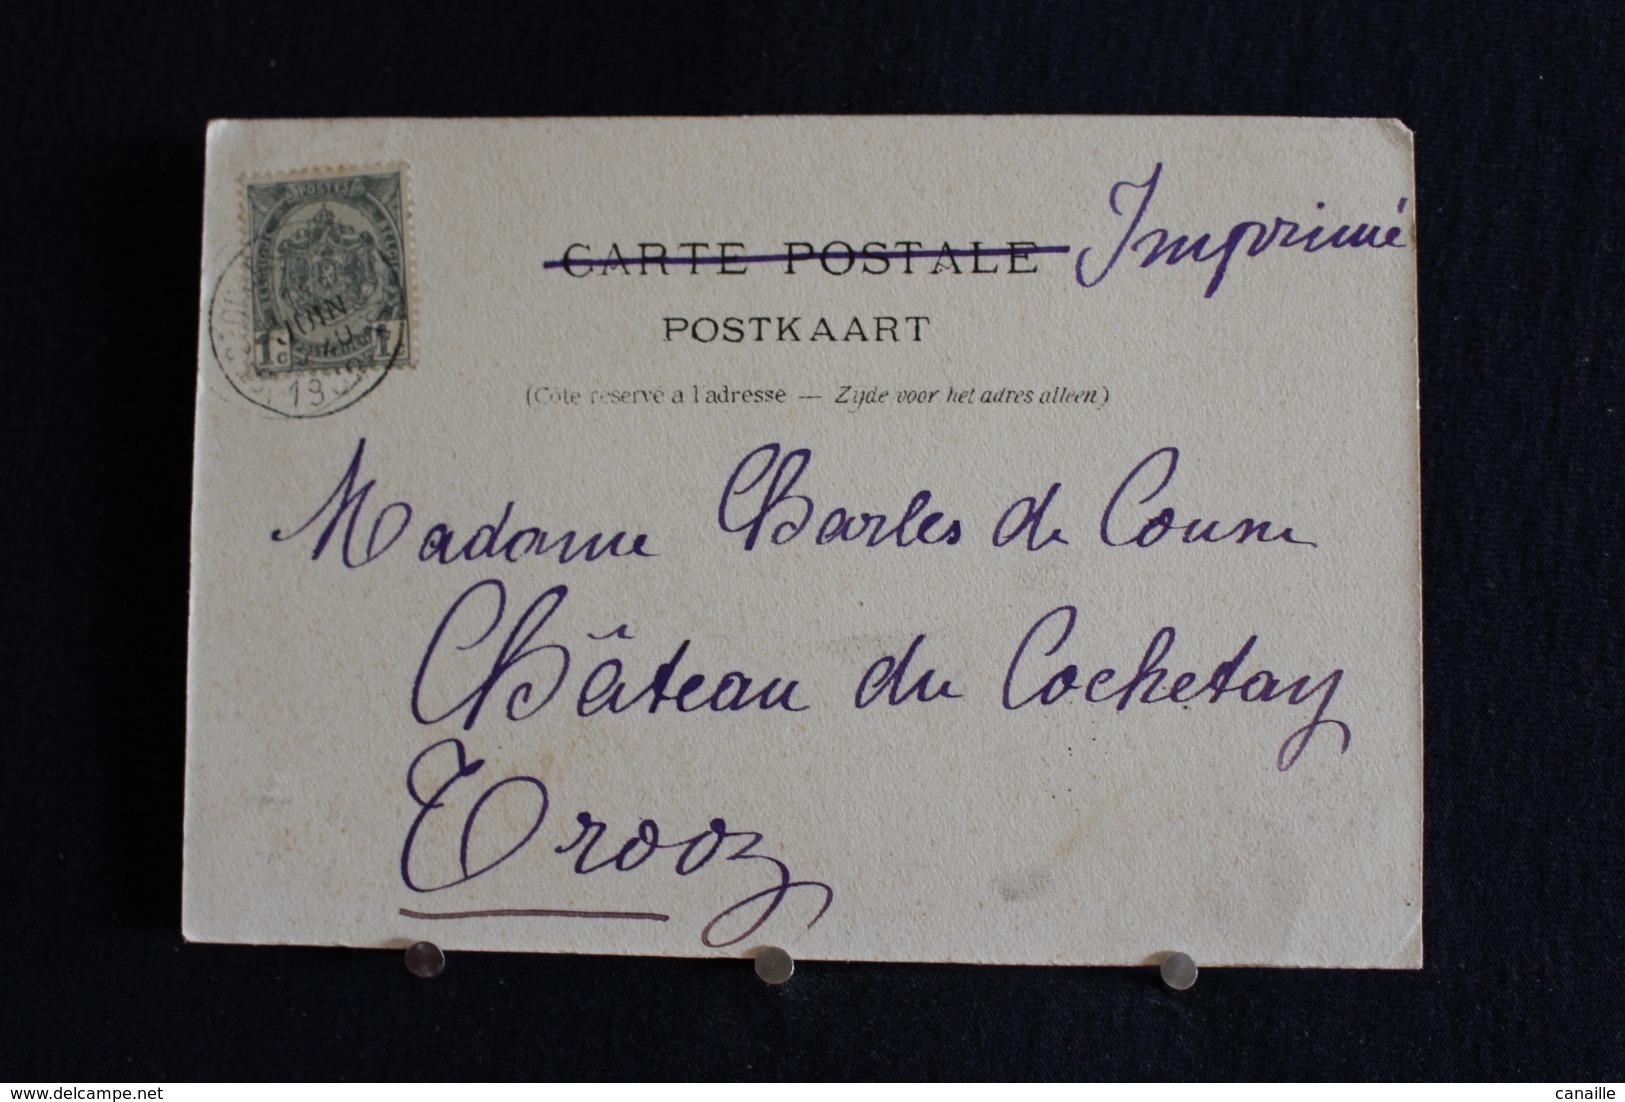 POSTES
JUIN
19
CARTE POSTALE Imprimé
POSTKAART
(Côte reservé a l'adresse — Zijde voor het adres alleen)
Madame Charles de Coune
Château du Cochetay
Trooz
delcampe.net
canaille